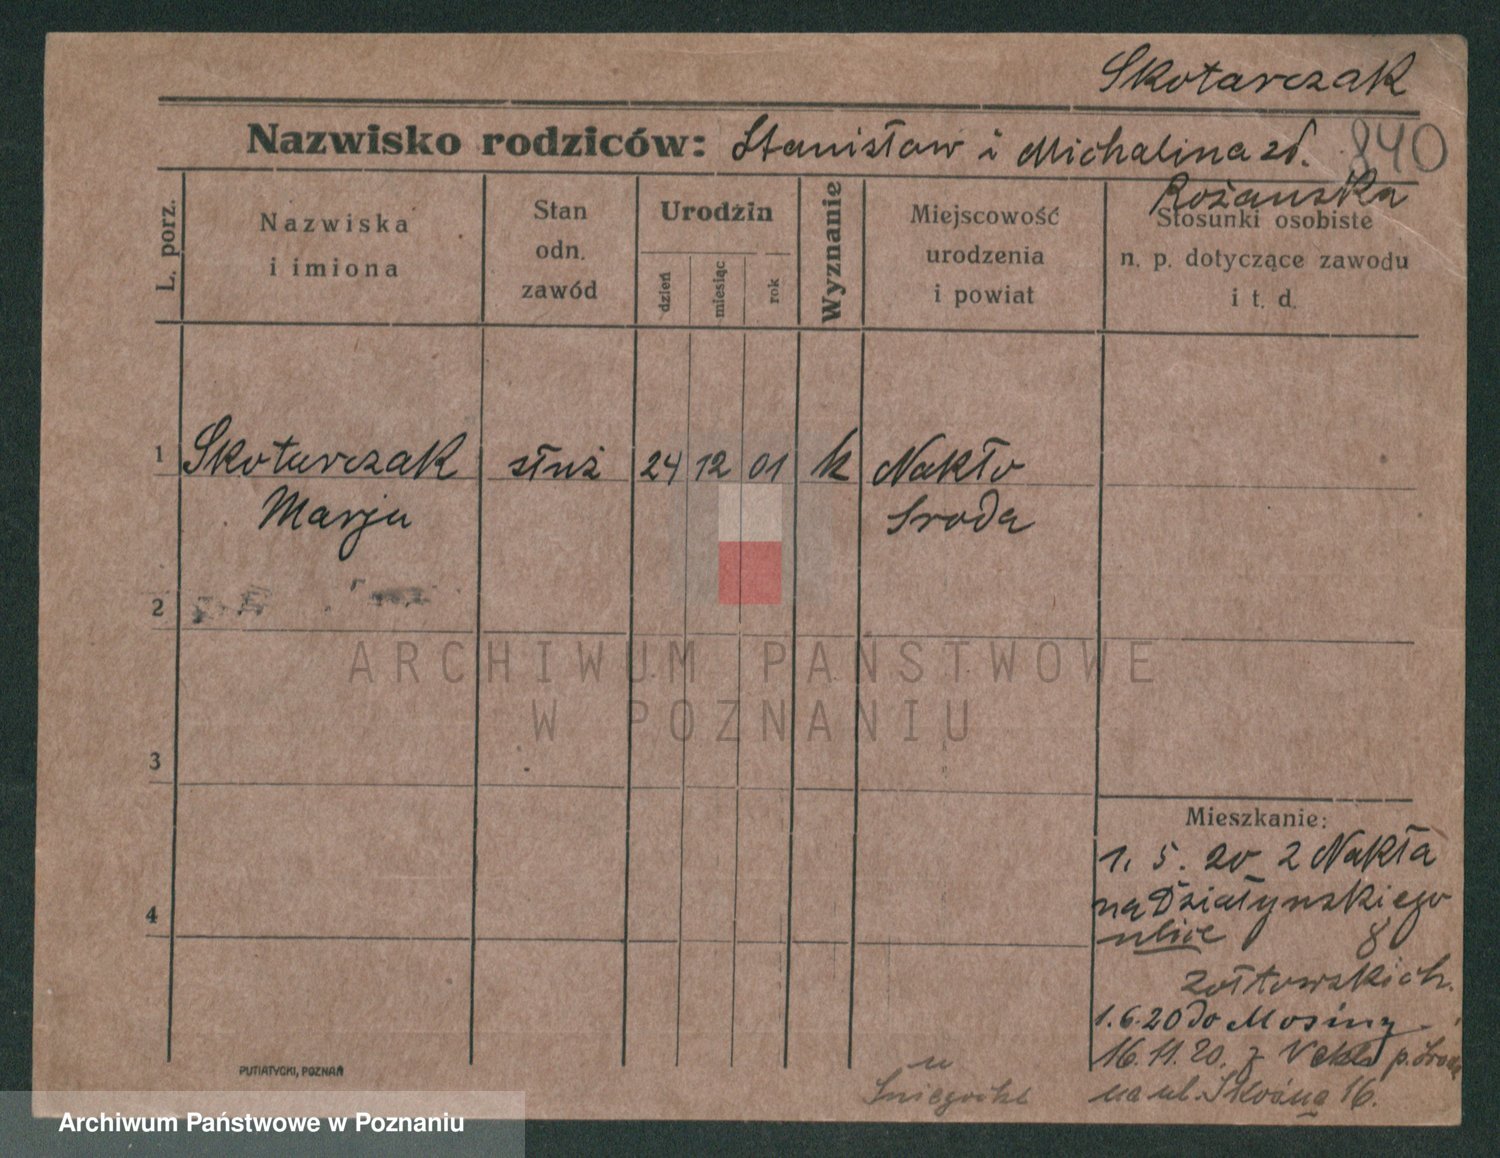 Skotarczak
Nazwisko rodziców: Stanisław i Michalina zd. 840
Rożańska
L. porz.
Nazwiska
i imiona
Stan
odn.
zawód
Urodzin
dzień
miesiąc
rok
Wyznanie
Miejscowość
urodzenia
i powiat
Stosunki osobiste
n. p. dotyczące zawodu
i t. d.
1 Skotarczak służ 24 12 01 k Nakło
Marja Sroda
2
ARCHIWUM PAŃSTWOWE
W POZNANIU
3
Mieszkanie:
1. 5. 20 z Nakła
na Działyńskiego
4 ulice 8
Zołtowskich.
1.6.20 do Mosiny
16.11.20. z Nekla p. Sroda
u
na ul. Skośna 16.
PUTIATYCKI, POZNAŃ
Archiwum Państwowe w Poznaniu